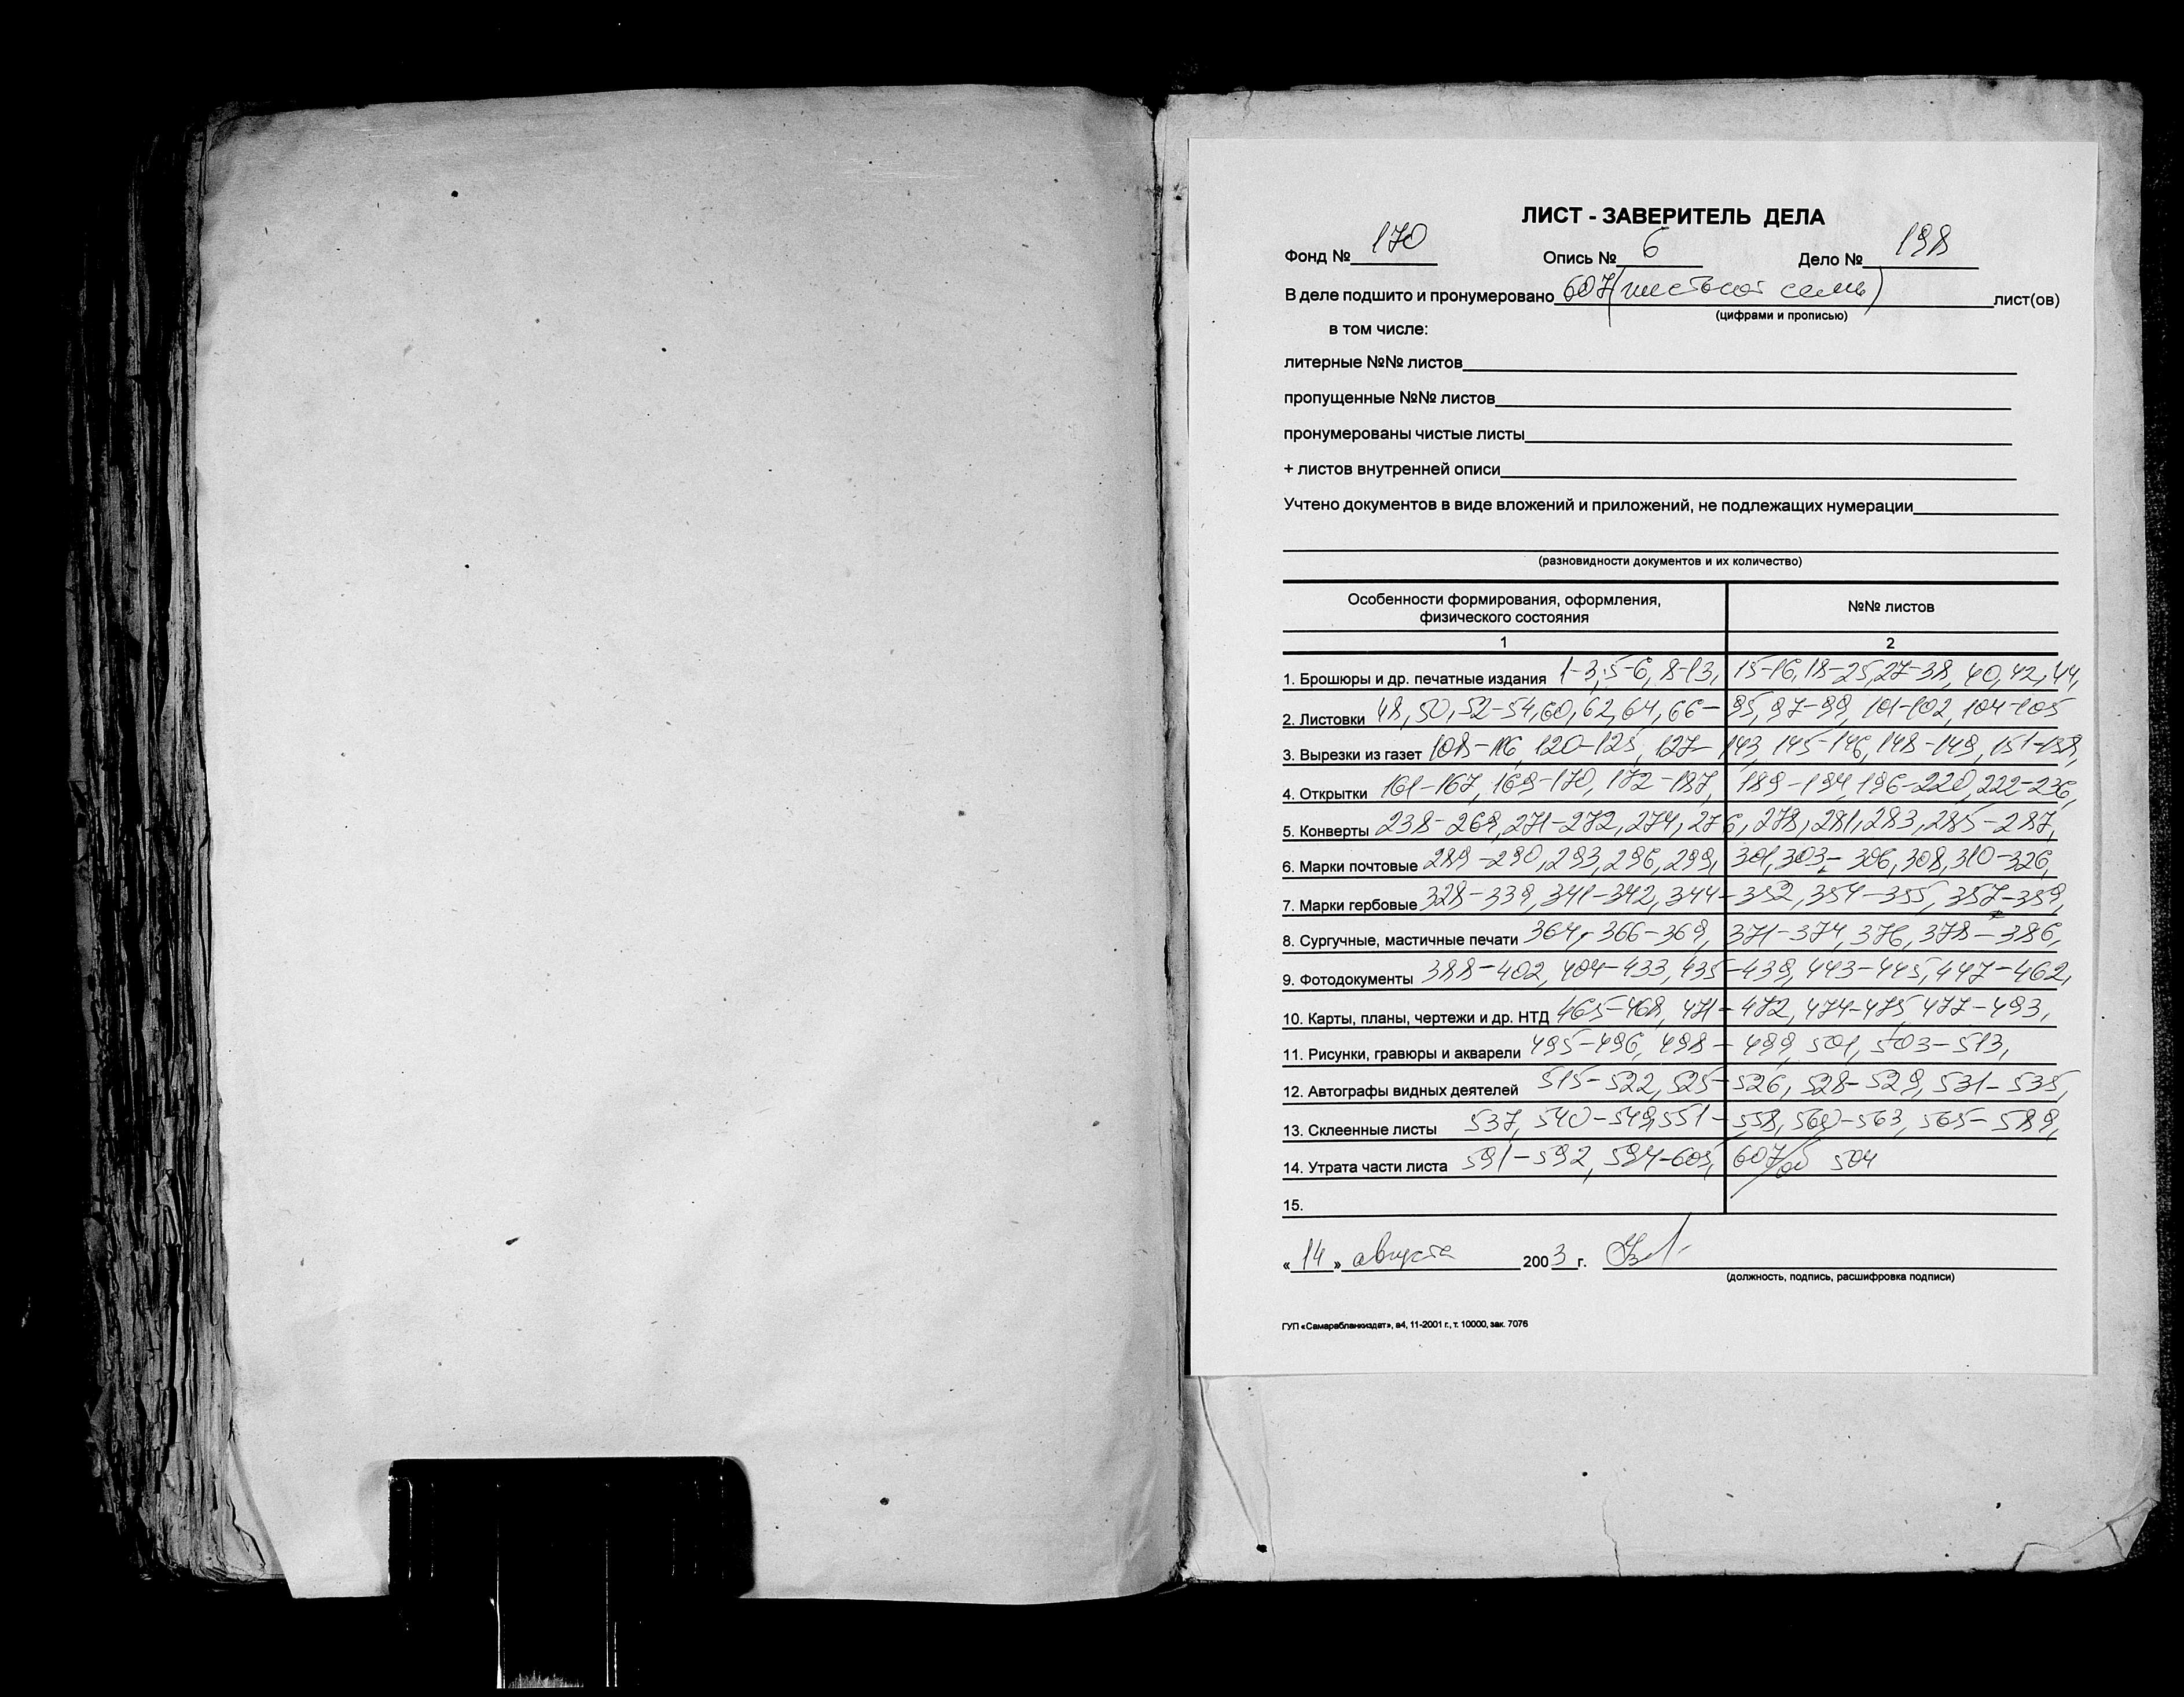 ЛИСТ - ЗАВЕРИТЕЛЬ ДЕЛА
Фонд № 170 Опись № 6 Дело № 198
В деле подшито и пронумеровано 607 (шестьсот семь) лист(ов)
(цифрами и прописью)
в том числе:
литерные №№ листов
пропущенные №№ листов
пронумерованы чистые листы
+ листов внутренней описи
Учтено документов в виде вложений и приложений, не подлежащих нумерации
(разновидности документов и их количество)
Особенности формирования, оформления, №№ листов
физического состояния
1 2
1. Брошюры и др. печатные издания 1-3, 5-6, 8-13, 15-16, 18-25, 27-38, 40, 42, 44,
2. Листовки 48, 50, 52-54, 60, 62, 64, 66-95, 97-99, 101-102, 104-105
3. Вырезки из газет 108-116, 120-125, 127-143, 145-146, 148-149, 151-159,
4. Открытки 161-167, 169-170, 172-187, 189-194, 196-220, 222-236,
5. Конверты 238-269, 271-272, 274, 276, 278, 281, 283, 285-287,
6. Марки почтовые 289-290, 293, 296, 299, 301, 303-306, 308, 310-326,
7. Марки гербовые 328-339, 341-342, 344-352, 354-355, 357-359,
8. Сургучные, мастичные печати 364, 366-369, 371-374, 376, 378-386,
9. Фотодокументы 388-402, 404-433, 435-439, 443-445, 447-462,
10. Карты, планы, чертежи и др. НТД 465-468, 471-472, 474-475, 477-493,
11. Рисунки, гравюры и акварели 495-496, 498-499, 501, 503-513,
12. Автографы видных деятелей 515-522, 525-526, 528-529, 531-535,
13. Склеенные листы 537, 540-549, 551-558, 560-563, 565-589,
14. Утрата части листа 591-592, 594-605, 607/об 504
15.
«14» августа 2003 г.
(должность, подпись, расшифровка подписи)
ГУП «Самарабланкиздат», а4, 11-2001 г., т. 10000, зак. 7076